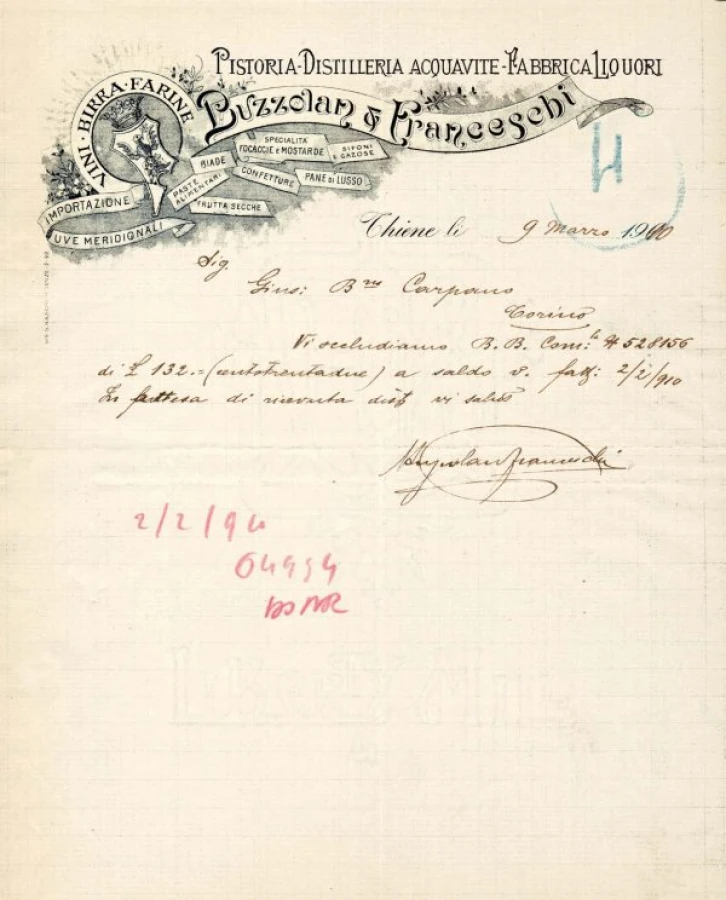 PISTORIA-DISTILLERIA ACQUAVITE-FABBRICA LIQUORI
Buzzolan & Franceschi
VINI·BIRRA·FARINE
SPECIALITÀ
FOCACCIE E MOSTARDE
SIFONI
E GAZOSE
BIADE
CONFETTURE
PANE DI LUSSO
PASTE
ALIMENTARI
FRUTTA SECCHE
IMPORTAZIONE
UVE MERIDIGNALI
Thiene li 9 Marzo 1910
Sig.
Gius: B.no Carpano
Torino
Vi accludiamo B. B. Com:le # 528156
di £ 132.= (centotrentadue) a saldo v. fatt: 2/2/910
In attesa di ricevuta dist vi salut
Buzzolan Franceschi
2/2/910
64954